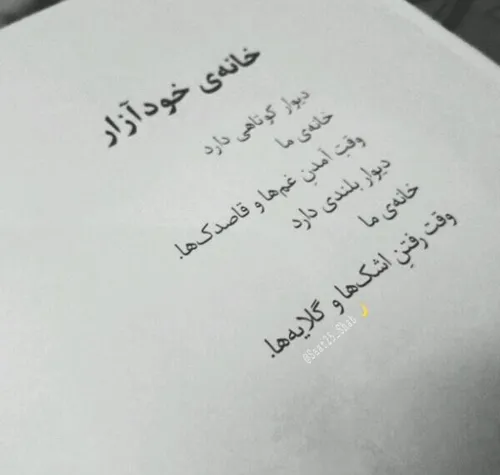 خانه‌ی خودآزار
دیوار کوتاهی دارد
خانه‌ی ما
وقتِ آمدنِ غم‌ها و قاصدک‌ها.
دیوار بلندی دارد
خانه‌ی ما
وقت رفتنِ اشک‌ها و گلایه‌ها.